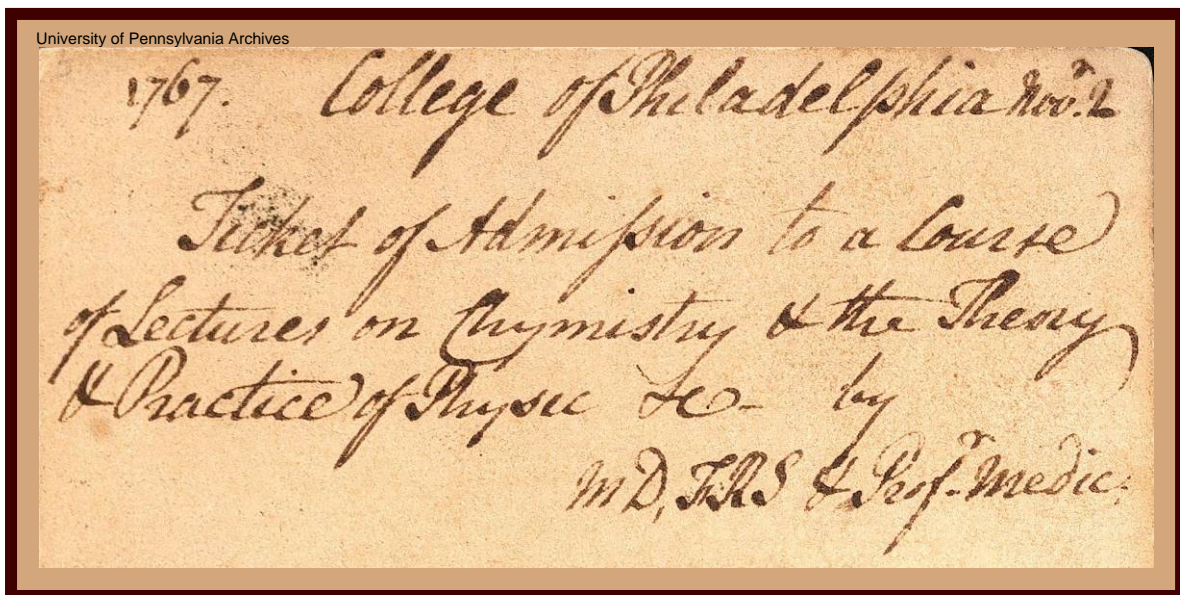 University of Pennsylvania Archives
1767. College of Philadelphia Novr. 2
Ticket of Admission to a Course
of Lectures on Chymistry & the Theory
& Practice of Physic &c - by
MD, FRS & Profr. Medic: